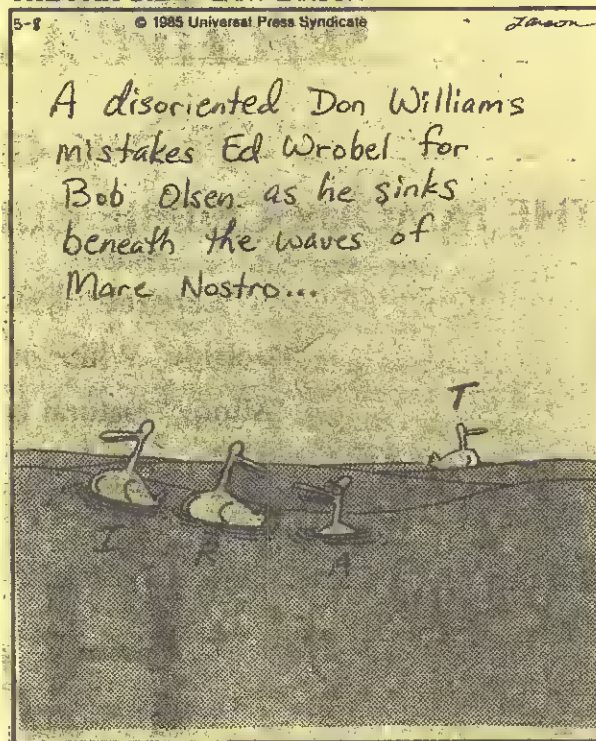 5-8 © 1985 Universal Press Syndicate Larson
A disoriented Don Williams
mistakes Ed Wrobel for
Bob Olsen as he sinks
beneath the waves of
Mare Nostro...
T
I A